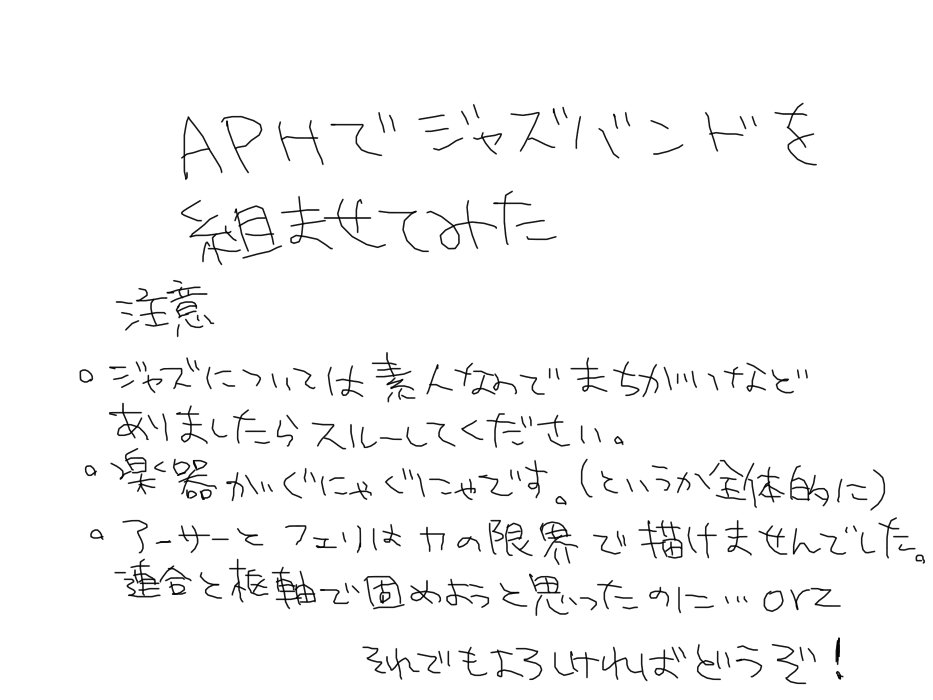 APHでジャズバンドを
組ませてみた
注意
○ジャズについては素人なのでまちがいなど
ありましたらスルーしてください。
○楽器がぐにゃぐにゃです。(というか全体的に)
○アーサーとフェリは力の限界で描けませんでした。
連合と枢軸で固めようと思ったのに…orz
それでもよろしければどうぞ!